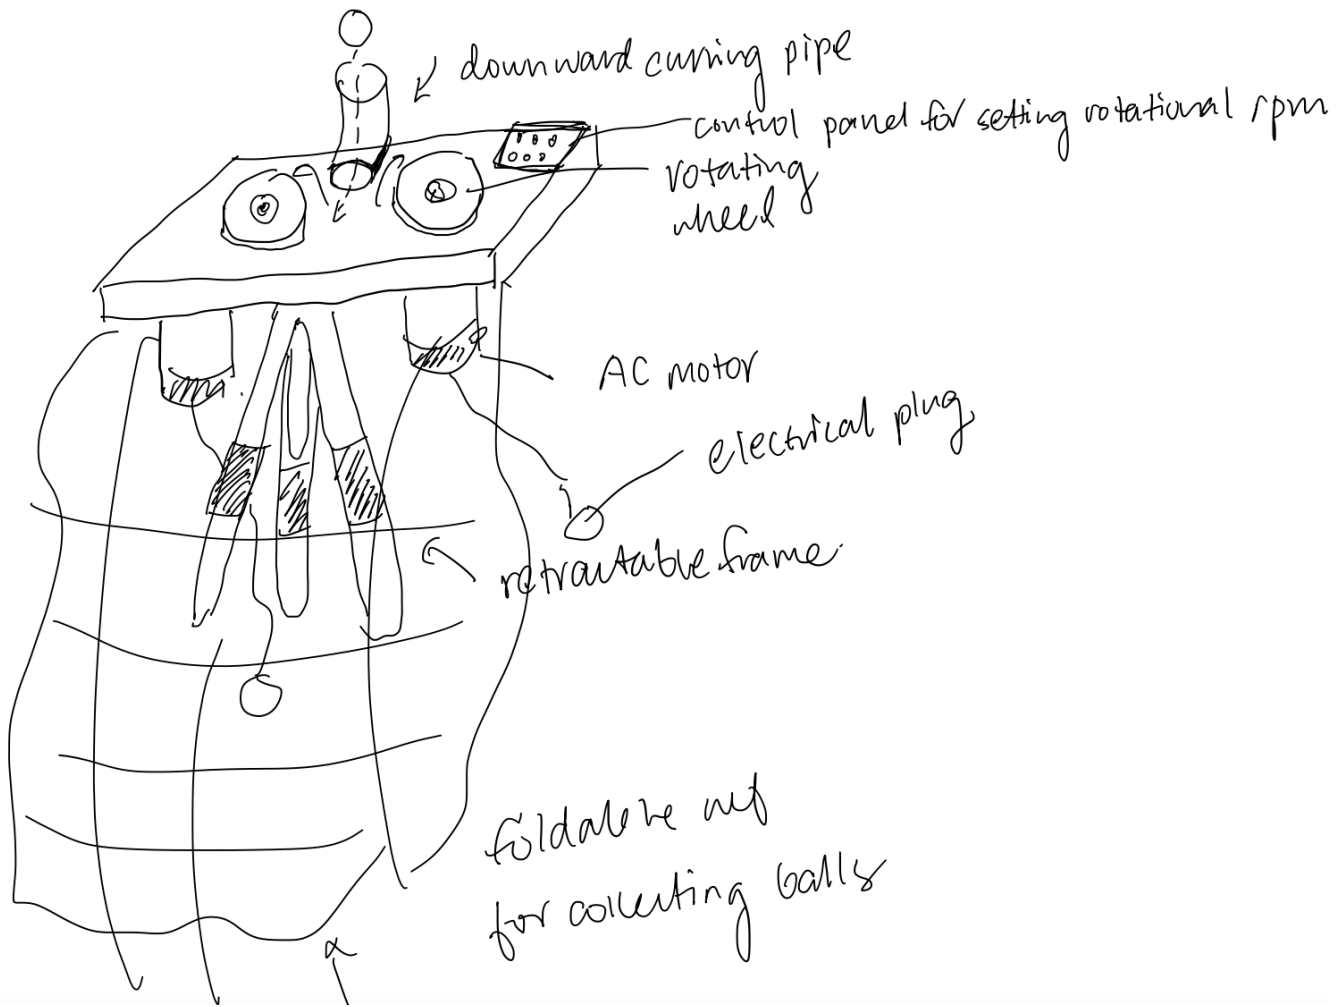 downward curving pipe
control panel for setting rotational rpm
rotating
wheel
AC motor
electrical plug
retractable frame
foldable net
for collecting balls